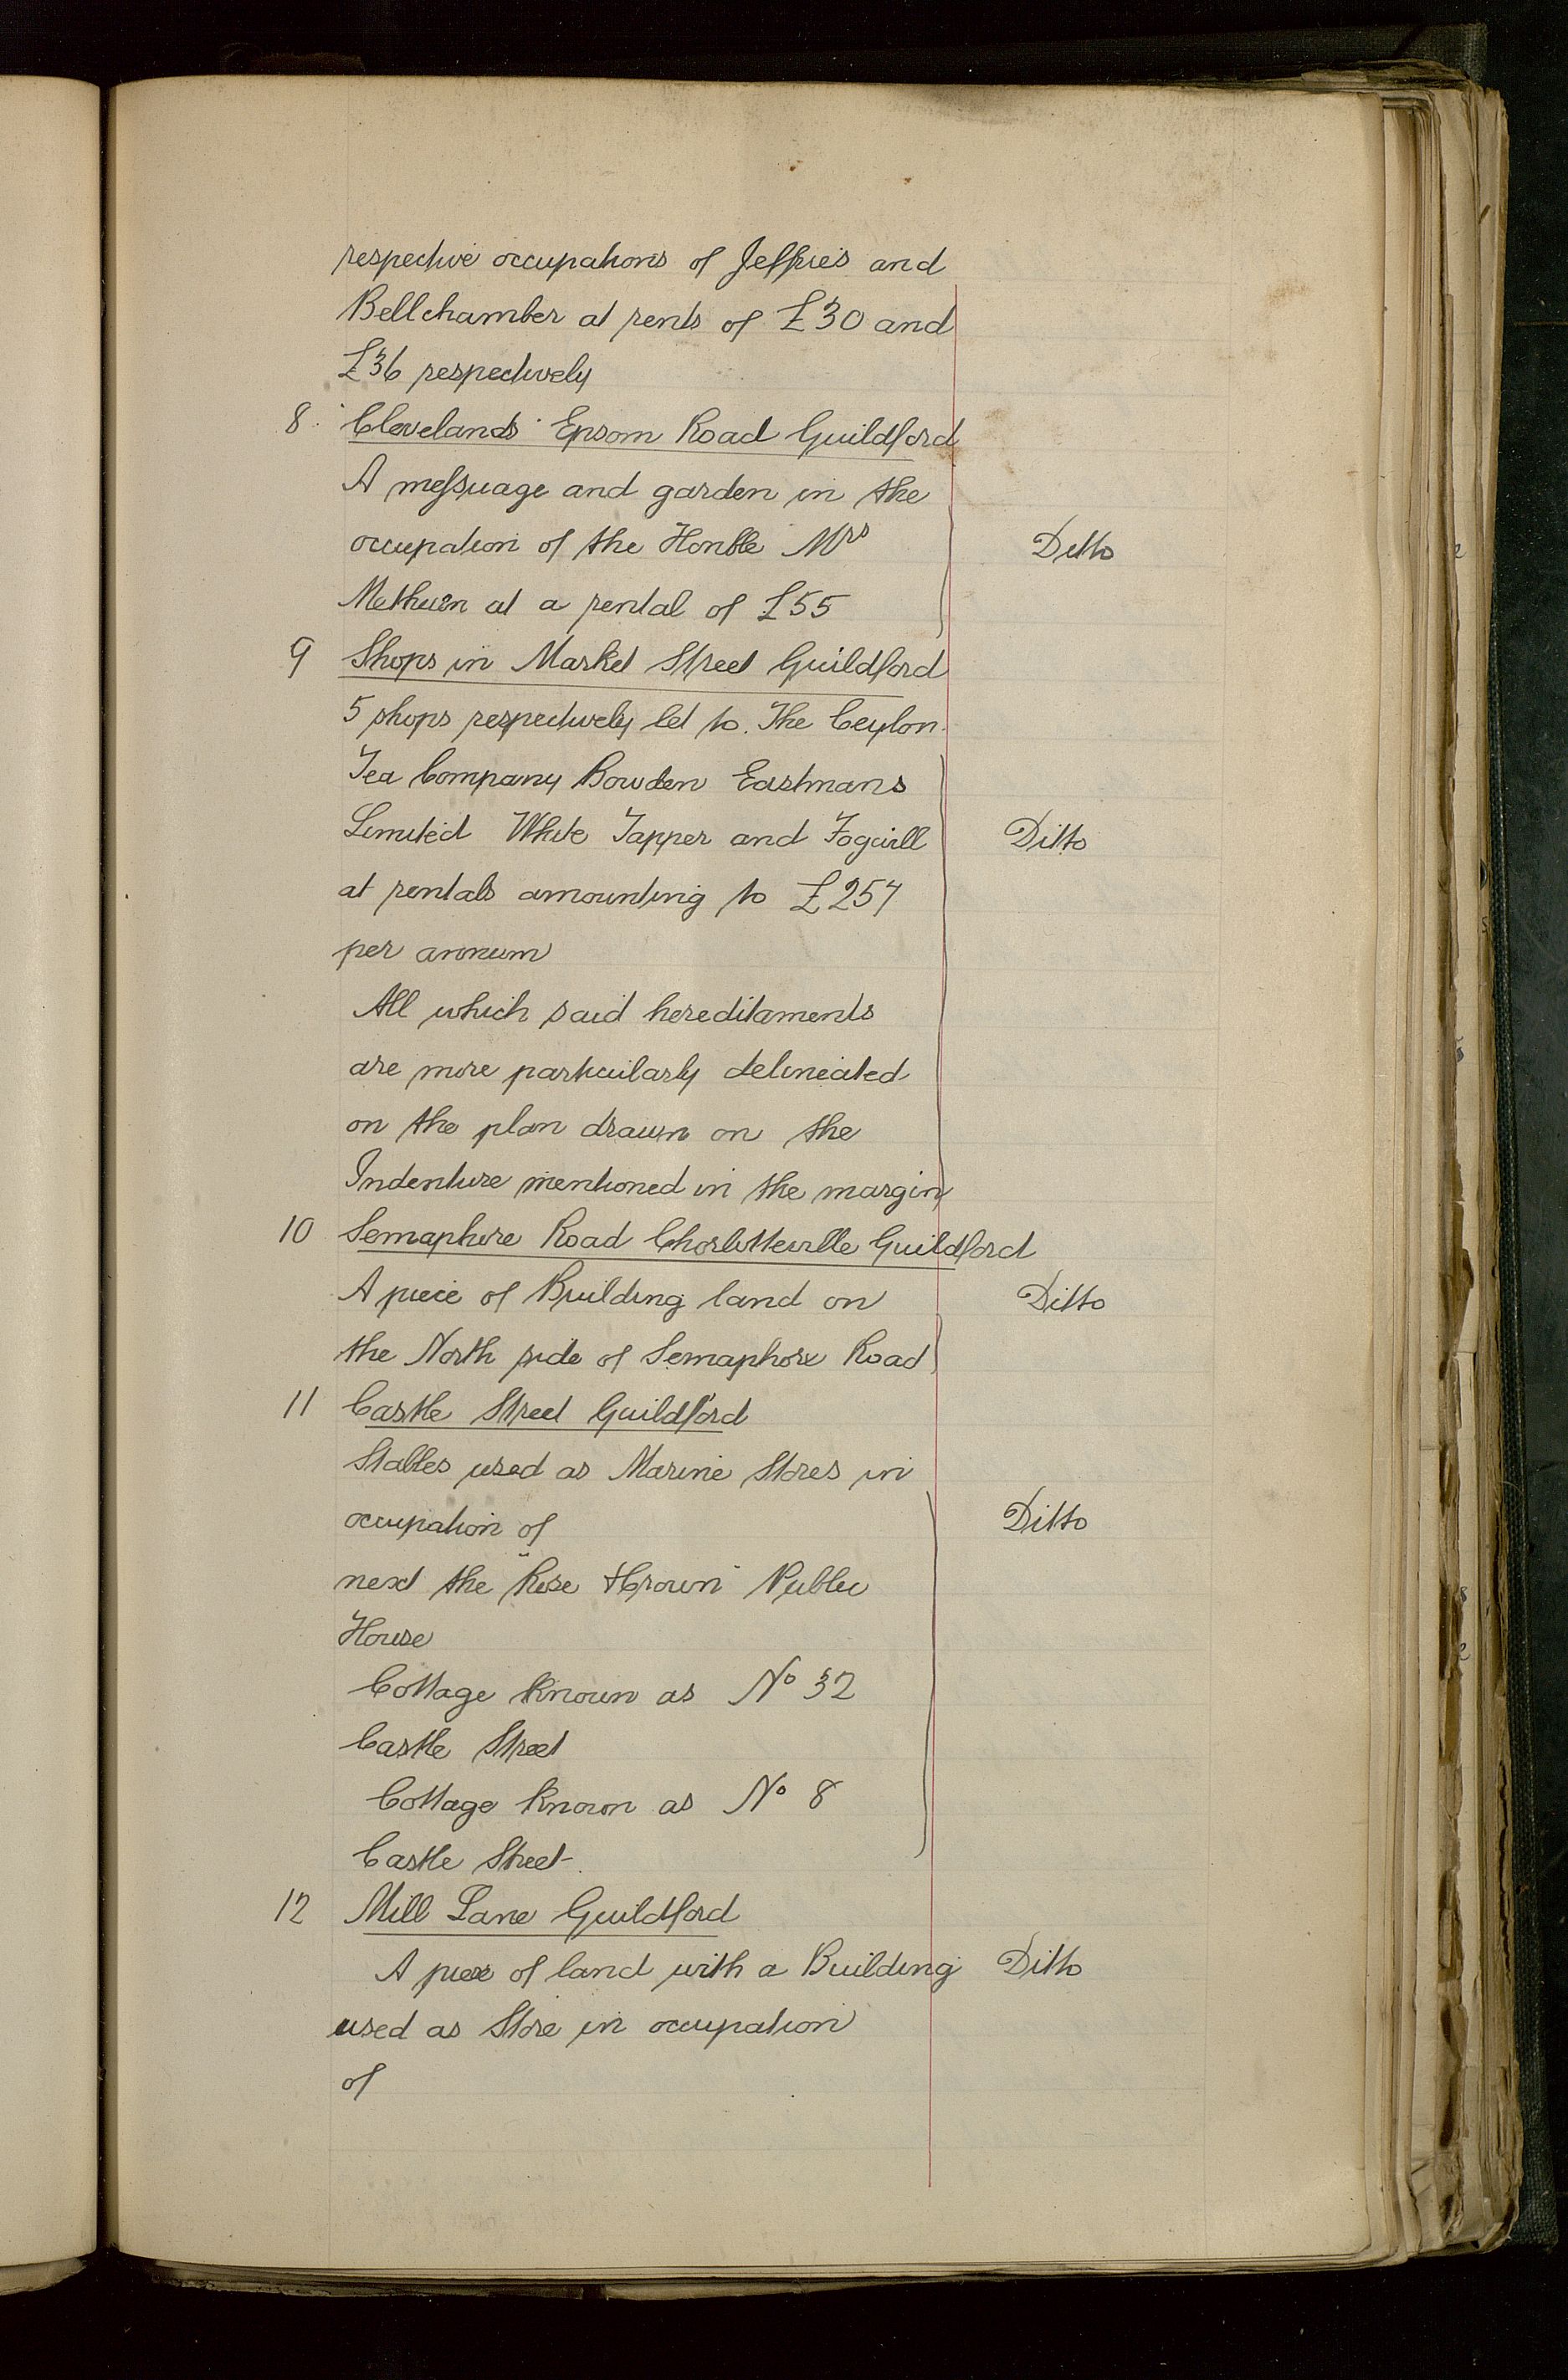 respective occupations of Jeffries and
Bellchamber at rents of £30 and
£36 respectively
8. "Clevelands" Epsom Road Guildford
A messuage and garden in the
occupation of the Honble Mrs Ditto
Methuen at a rental of £55
9 Shops in Market Street Guildford
5 shops respectively let to. The Ceylon
Tea Company Bowden Eastmans
Limited White Tapper and Fogwill Ditto
at rentals amounting to £257
per annum
All which said hereditaments
are more particularly delineated
on the plan drawn on the
Indenture mentioned in the margin
10 Semaphore Road Charlotteville Guildford
A piece of Building land on Ditto
the North side of Semaphore Road
11 Castle Street Guildford
Stables used as Marine Stores in
occupation of Ditto
next the "Rose & Crown" Public
House
Cottage known as No 32
Castle Street
Cottage known as No 8
Castle Street
12 Mill Lane Guildford
A piece of land with a Building Ditto
used as Store in occupation
of